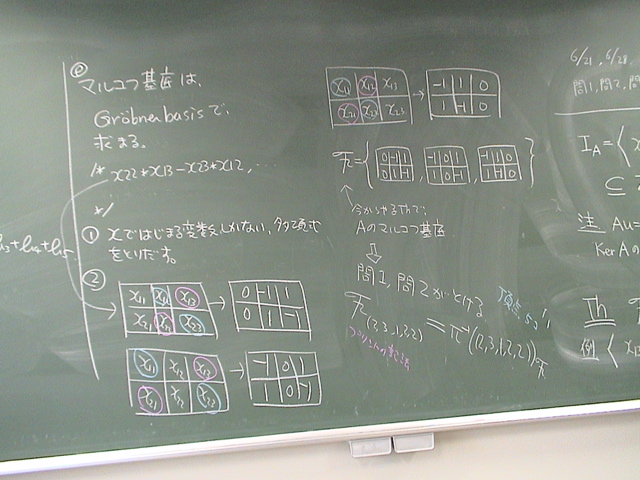 ⓪
マルコフ基底は、
Gröbner basis で、
求まる。
/* x22*x13-x23*x12, ...
*/
① xではじまる変数しかない, 多項式
をとりだす。
②
x11 x12 x13
x21 x22 x23
→
0 -1 1
0 1 -1
x11 x12 x13
x21 x22 x23
→
-1 0 1
1 0 -1
x11 x12 x13
x21 x22 x23
→
-1 1 0
1 -1 0
= {
0 -1 1
0 1 -1
,
-1 0 1
1 0 -1
,
-1 1 0
1 -1 0
}
Aのマルコフ基底
⇓
問1, 問2がとける
(2,3,1,3,2)
6/21, 6/28
問1, 問2, 問
I_A =
⊆
注 Au=
Ker Aの
Th
例